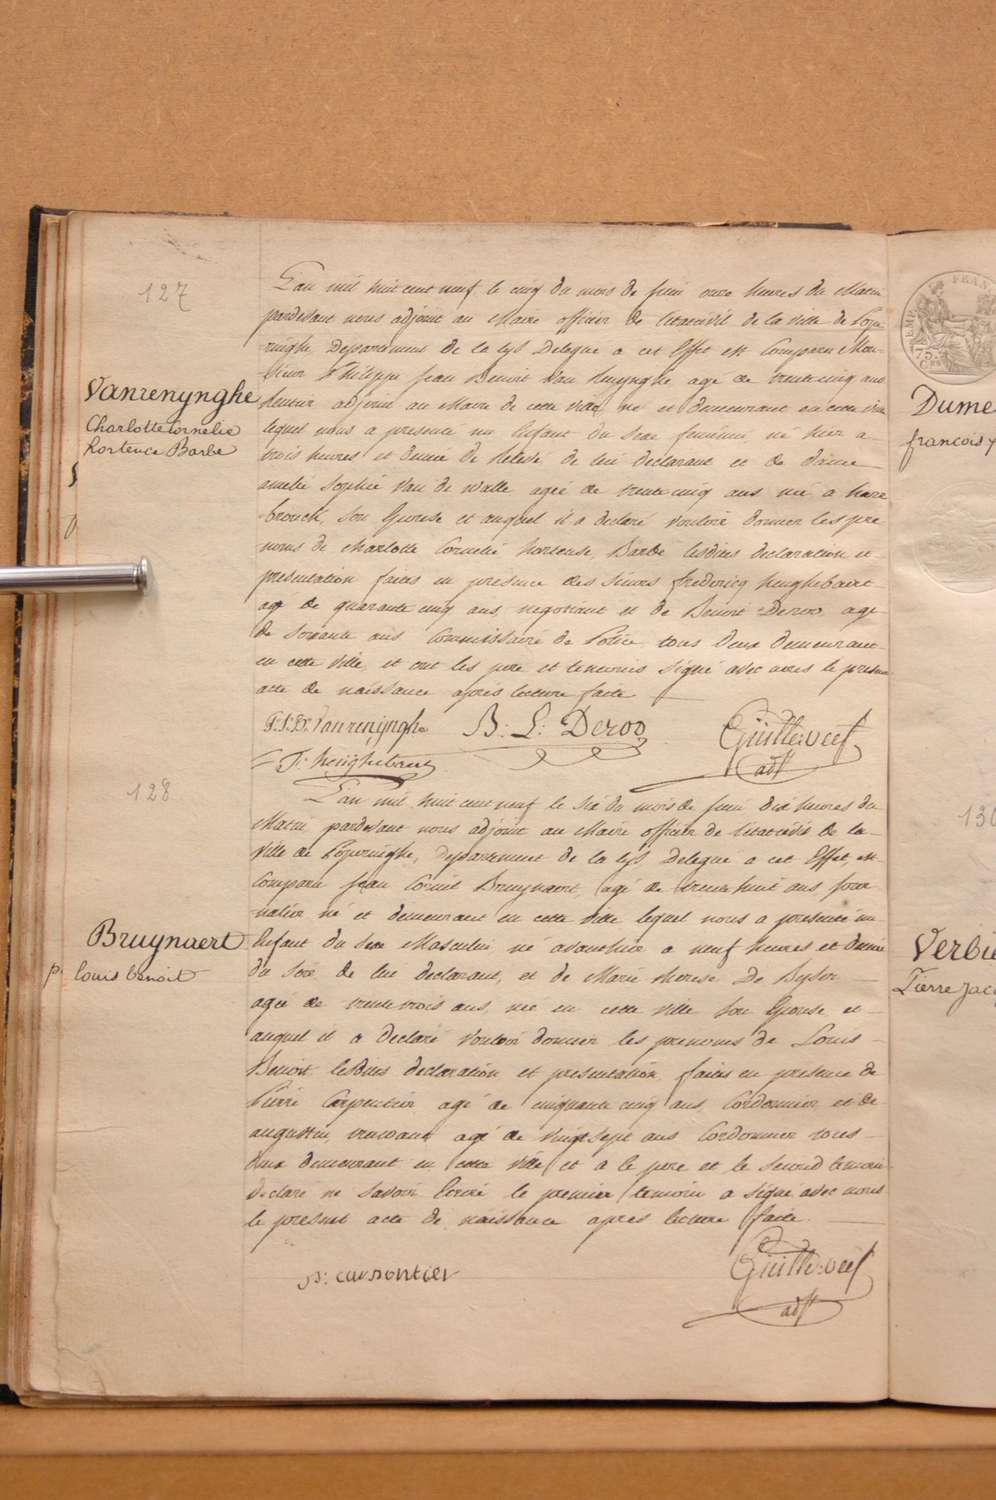 127
Vanrenynghe
Charlotte Cornelie
Hortence Barbe
L'an mil huit cent neuf le cinq du mois de juin onze heures du Matin
pardevant nous adjoint au Maire officier de l'etat civil de la ville de Pope
ringhe, Departement de la lys Delegue a cet Effet est Comparu Mon-
sieur Philippe Jean Benoit Van Renynghe agé de trente cinq ans
Rentier adjoint au Maire de cette ville né et demeurant en cette ville
lequel nous a presenté un Enfant du sexe feminin, né hier a
trois heures et demie de relevé de lui declarant et de Dame
amelie Sophie Van de Walle agée de trente cinq ans née a Haze
brouck, son Epouse et auquel il a declaré vouloir donner les pre
noms de Charlotte Cornelie hortense Barbe lesdites declaration et
presentation faites en presence des sieurs fredericq henghebaert
agé de quarante cinq ans, negotiant et de Benoit Deroo agé
de soixante ans Commissaire de Police tous deux demeurant
en cette ville et ont les pere et temoins signé avec nous le present
acte de naissance après lecture faite
P. J. B. Vanrenynghe B: L: Deroo
f. henghebaert
adjt
128
Bruynaert
p. Louis benoit
L'an mil huit cent neuf le six du mois de juin dix heures du
Matin, pardevant nous adjoint au Maire officier de l'etat civil de la
ville de Poperinghe, departement de la lys Delegué a cet Effet, est
Comparu Jean Bruynaert, agé de trente huit ans jour
nalier né et demeurant en cette ville lequel nous a presenté un
Enfant du sexe Masculin né avanthier a neuf heures et demie
du soir, de lui declarant, et de Marie therese De
agée de trente trois ans, née en cette ville son Epouse et
auquel il a declaré vouloir donner les prenoms de Louis
Benoit lesdites declaration et presentation, faites en presence de
Pierre Carpentier agé de cinquante cinq ans, Cordonnier et de
augustin, agé de vingt sept ans Cordonnier tous
deux demeurant en cette ville et a le pere et le second temoin
declaré ne savoir Ecrire le premier temoin a signé avec nous
le present acte de naissance apres lecture faite.
p: carpentier
adjt
Dume
francois
130
Verbie
Pierre Jacq